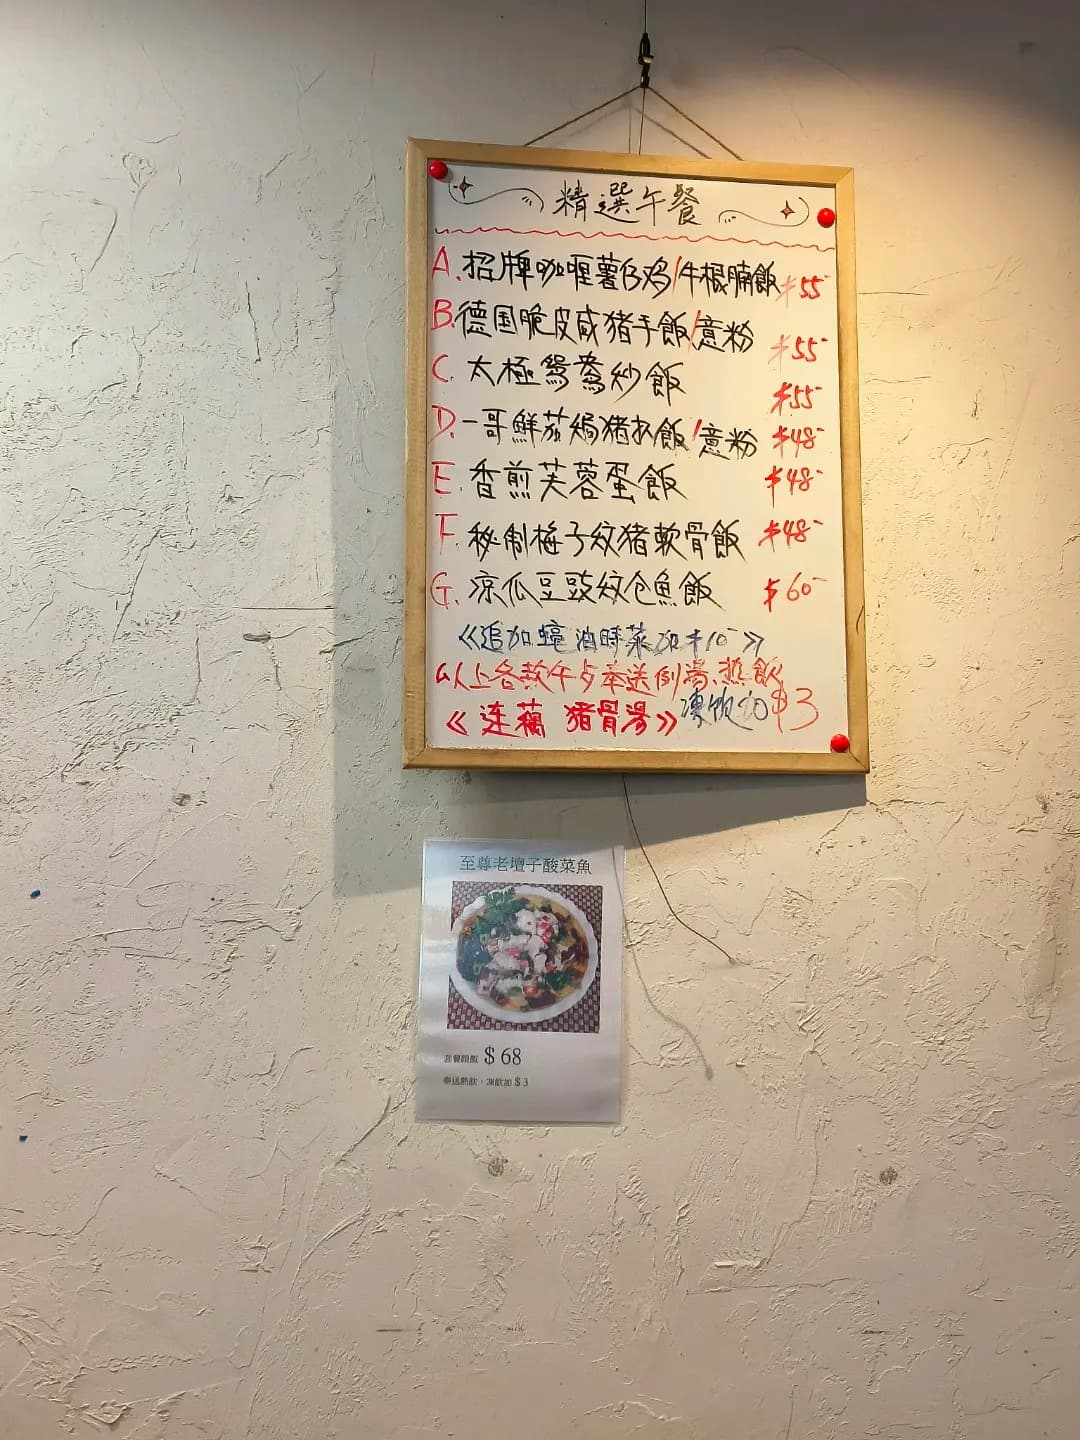 精選午餐
A.招牌咖喱薯仔鸡/牛根腩飯 $55-
B.德国脆皮咸猪手飯/意粉 $55-
C.太極鴛鴦炒飯 $55-
D.一哥鮮茄焗猪扒飯/意粉 $48-
E.香煎芙蓉蛋飯 $48-
F.秘制梅子炆猪軟骨飯 $48-
G.凉瓜豆豉炆仓魚飯 $60-
《追加蠔油時菜加$10-》
以上各款午歺奉送例湯、热飲
《连藕 猪骨湯》 凍饮加$3
至尊老壇子酸菜魚
套餐跟飯 $68
奉送熱飲，凍飲加$3